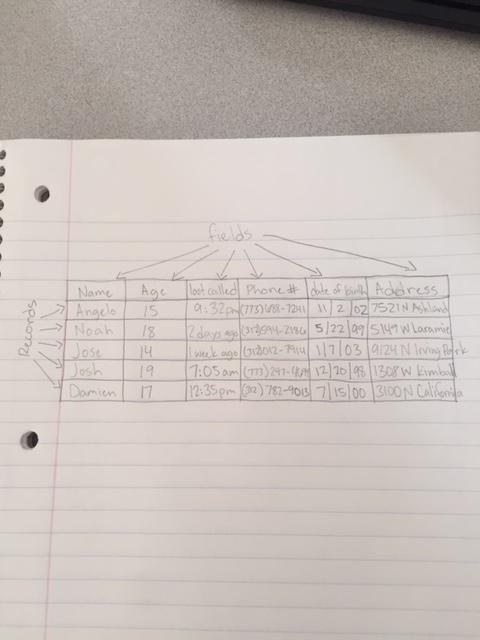 fields
Records
Name Age last called Phone # date of birth Address
Angelo 15 9:32pm (773) 688-7241 11/2/02 7521 N Ashland
Noah 18 2 days ago 5/22/99 5149 W Laramie
Jose 14 1 week ago 1/7/03 9124 N Irving Park
Josh 19 7:05am (773) 12/20/98 1308 W Kimball
Damien 17 12:35pm (312) 782-9013 7/15/00 3100 N California